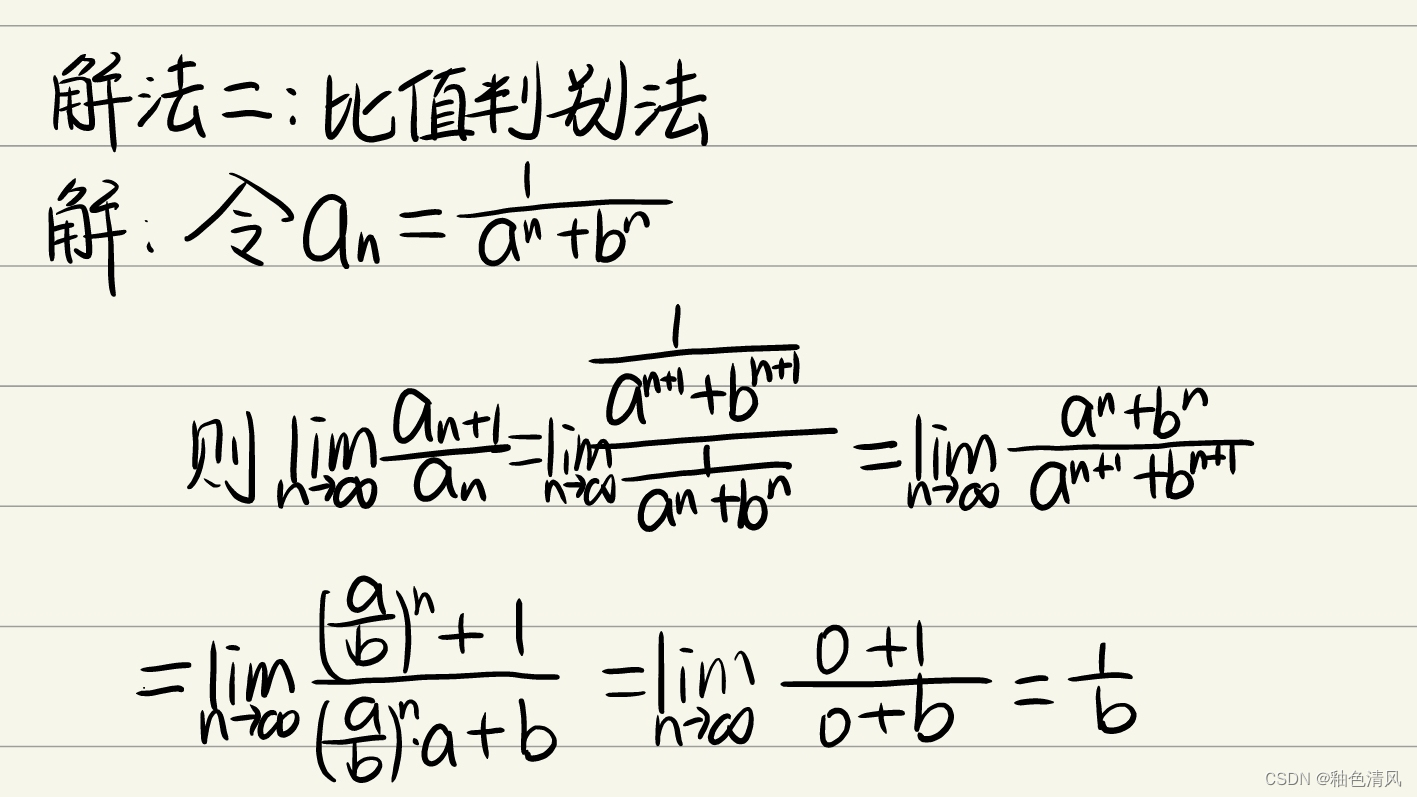 解法二：比值判别法
解：令 a_n = \frac{1}{a^n+b^n}
则 \lim_{n→∞} \frac{a_{n+1}}{a_n} = \lim_{n→∞} \frac{\frac{1}{a^{n+1}+b^{n+1}}}{\frac{1}{a^n+b^n}} = \lim_{n→∞} \frac{a^n+b^n}{a^{n+1}+b^{n+1}}
= \lim_{n→∞} \frac{(\frac{a}{b})^n+1}{(\frac{a}{b})^n·a+b} = \lim_{n→∞} \frac{0+1}{0+b} = \frac{1}{b}
CSDN @釉色清风